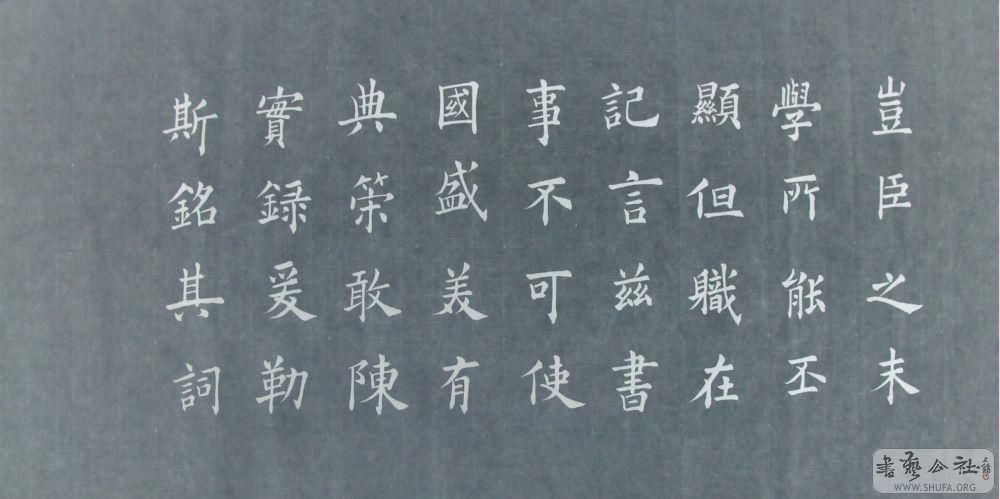 豈臣之末
學所能丕
顯但職在
記言茲書
事不可使
國盛美有
典策敢陳
實録爰勒
斯銘其詞
書藝公社
WWW.SHUFA.ORG